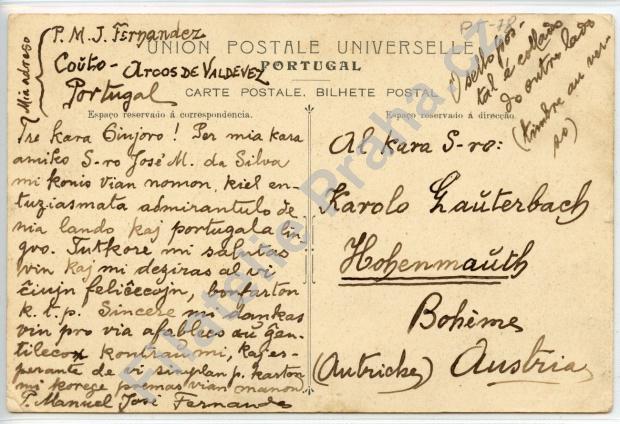 P. M. J. Fernandez
Coûto - Arcos de Valdevez
Portugal
Mia adreso
UNION POSTALE UNIVERSELLE
PORTUGAL
CARTE POSTALE, BILHETE POSTAL
Espaço reservado á correspondencia.
Espaço reservado á direcção.
PT-18
O sello pos-
tal á collado
do outro lado
(timbre au ver-
so)
Tre kara Sinjoro! Per mia kara
amiko S-ro José M. da Silva
mi konis vian nomon, kiel en-
tuziasmata admirantulo de
nia lando kaj portugala lin
gvo. Tutkore mi salutas
vin kaj mi deziras al vi
ĉiujn feliĉecojn, bonfarton
k. t. p. Sincere mi dankas
vin pro via afableco aŭ ĝen-
tileco kontraŭ mi, kaj es-
perante de vi simplan p. karton
mi korege premas vian manon
P. Manuel José Fernandes
Al kara S-ro:
Karolo Laŭterbach
Hohenmaŭth
Bohême
(Autriche) Austria
Filatelie Praha.cz